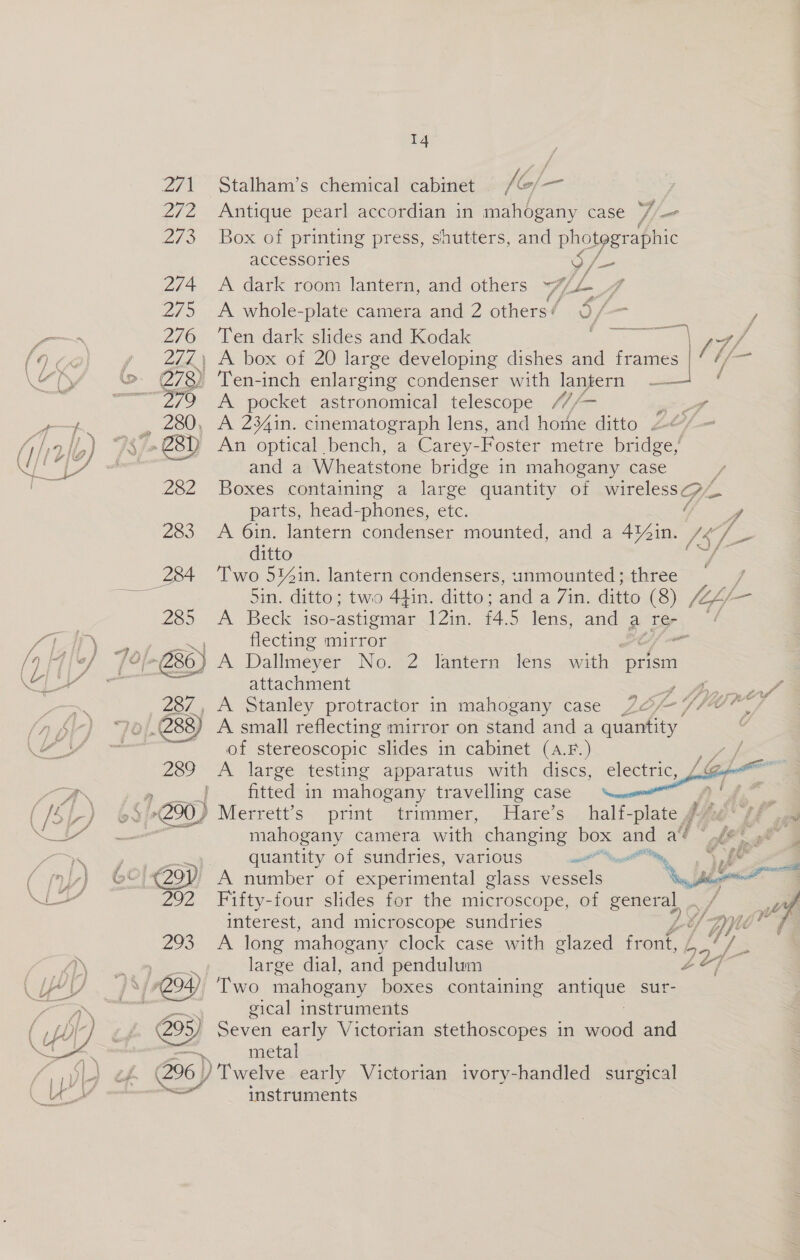 14
271 Stalham's chemical cabinet
272 Antique pearl accordian in mahogany case 7/-
273 Box of printing press, shutters, and photographic
accessories
274 A dark room lantern, and others
275 A whole-plate camera and 2 others
276 Ten dark slides and Kodak
277 A box of 20 large developing dishes and frames
278 Ten-inch enlarging condenser with lantern
279 A pocket astronomical telescope
280 A 2¾in. cinematograph lens, and home ditto
281 An optical bench, a Carey-Foster metre bridge,
and a Wheatstone bridge in mahogany case
282 Boxes containing a large quantity of wireless
parts, head-phones, etc.
283 A 6in. lantern condenser mounted, and a 4½in.
ditto
284 Two 5½in. lantern condensers, unmounted; three
5in. ditto; two 4½in. ditto; and a 7in. ditto (8)
285 A Beck iso-astigmar 12in. f4.5 lens, and a re-
flecting mirror
286 A Dallmeyer No. 2 lantern lens with prism
attachment
287 A Stanley protractor in mahogany case
288 A small reflecting mirror on stand and a quantity
of stereoscopic slides in cabinet (A.F.)
289 A large testing apparatus with discs, electric,
fitted in mahogany travelling case
290 Merrett's print trimmer, Hare's half-plate
mahogany camera with changing box and a
quantity of sundries, various
291 A number of experimental glass vessels
292 Fifty-four slides for the microscope, of general
interest, and microscope sundries
293 A long mahogany clock case with glazed front,
large dial, and pendulum
294 Two mahogany boxes containing antique sur-
gical instruments
295 Seven early Victorian stethoscopes in wood and
metal
296 Twelve early Victorian ivory-handled surgical
instruments